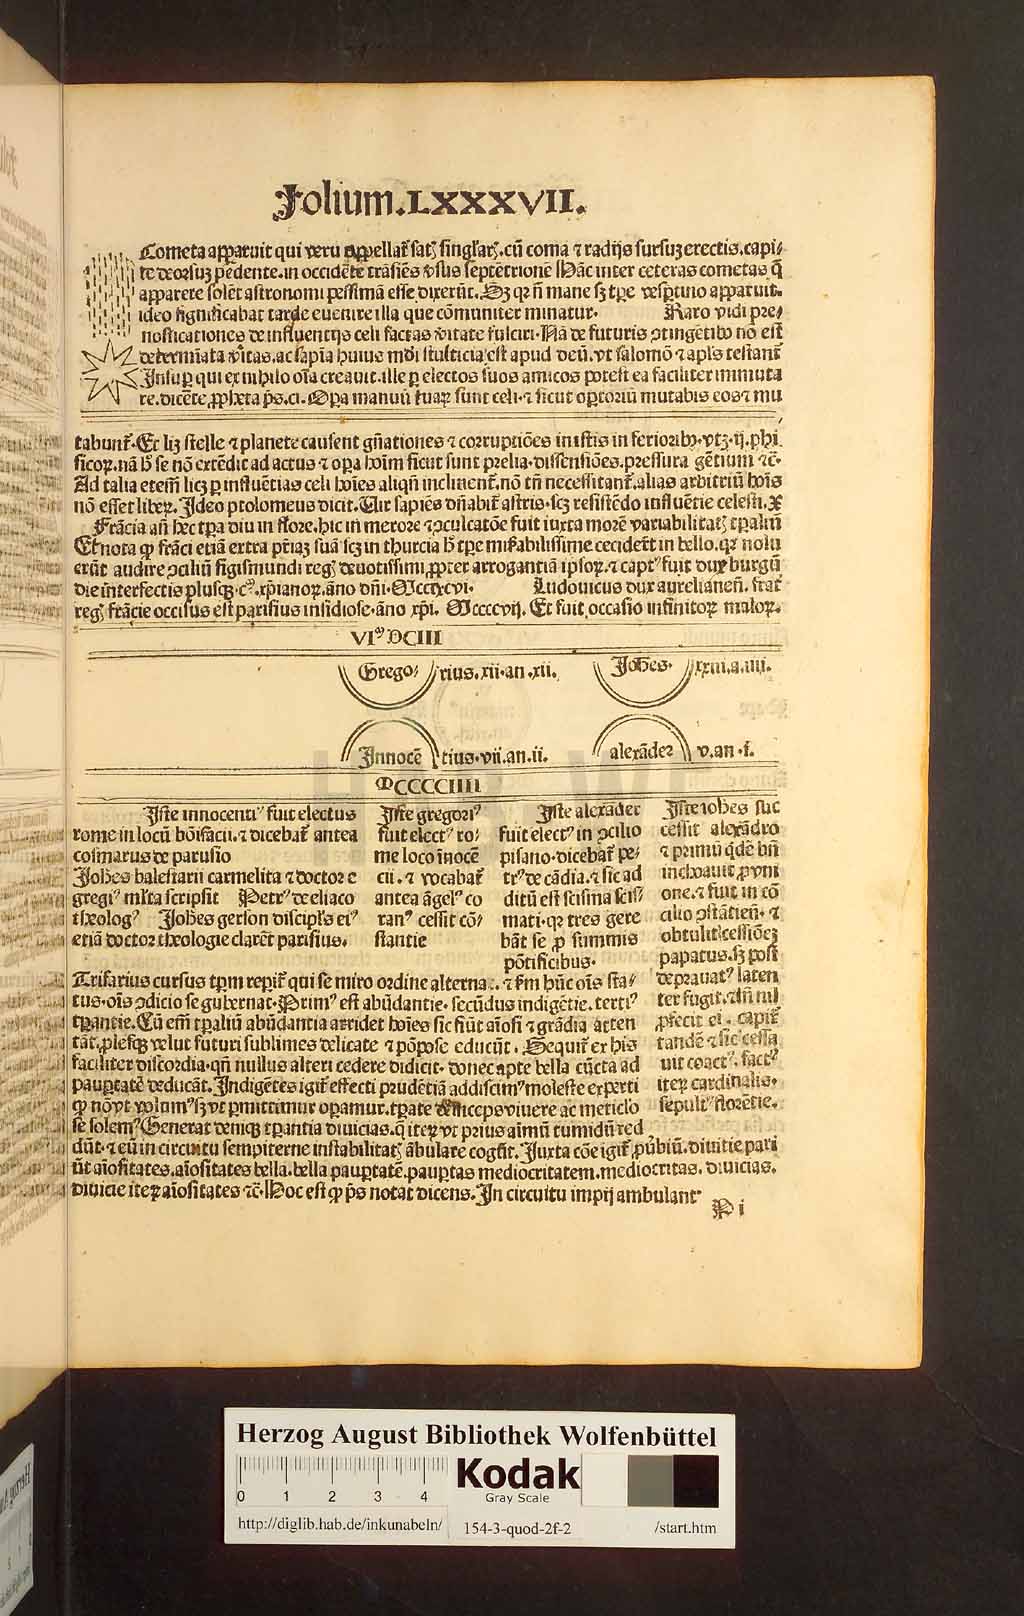 Folium.LXXXVII.
Cometa apparuit qui veru appellat᷑ satꝭ singl'arꝭ.cū coma ⁊ radijs sursuꝫ erectis.capi⸗
te deorsuꝫ pēdente.in occidēte trāsiēs ꝟsus septētrionē Hāc inter ceteras cometas q̄
apparere solēt astronomi pessimā esse dixerūt. Sꝫ qꝛ n̄ mane sꝫ tꝑe vespertino apparuit.
ideo significabat tarde euenire illa que cōmuniter minatur. Raro vidi pre⸗
nosticationes de influentijs celi factas ꝟitate fulciri. Nā de futuris ↄtingētibꝰ nō est
determīata ꝟitas.ac sapīa huius mūdi stulticia est apud deū.vt salomō ⁊ apl's testant᷑
Insuꝑ qui ex nihilo oīa creauit.ille ꝑ electos suos amicos potest ea faciliter immuta
re.dicēte ꝓpheta p̄s.ci. Oꝑa manuū tuaꝝ sunt celi.⁊ sicut oꝑtoriū mutabis eos ⁊ mu
tabunt᷑. Et licꝫ stelle ⁊ planete causent gn̄ationes ⁊ corruptiōes in istis inferioribꝰ.vtꝫ.ij.phi
sicoꝝ.nā h̄ se nō extēdit ad actus ⁊ oꝑa hoīm sicut sunt prelia.dissensiōes.pressura gētium ⁊c̄.
Ad talia etem̄ licꝫ ꝑ influētias celi hoīes aliqn̄ inclinent᷑.nō tn̄ necessitant᷑.alias arbitriū hoīs
nō esset libeꝝ. Ideo ptolomeus dicit. Uir sapiēs dn̄abit᷑ astris.scꝫ resistēdo influētie celesti.
Frācia añ hec tꝑa diu in flore.hic in merore ⁊ ↄculcatōe fuit iuxta morē variabilitatꝭ tꝑaliū
Et nota ꝙ frāci etiā extra pr̄iaꝫ suā scꝫ in thurcia h̄ tꝑe miẜabilissime cecidert̄ in bello.qꝛ nolu
erūt audire ↄciliū sigismundi regꝭ deuotissimi ꝓpter arrogantiā ipsoꝝ.⁊ captꝰ fuit dux burgū
die interfectis plusqꝫ.cͫ.xp̄ianoꝝ.āno dn̄i.Mccccxcvi. Ludouicus dux aurelianeñ. frat᷑
regꝭ frācie occisus est parisius insidiose.āno xp̄i. Mccccvij. Et fuit occasio infinitoꝝ maloꝝ.
VIͫ DCIII
Grego⸗ rius.xii.an.xii. Joh̄es. xxiii.a.iiii.
Innocē tius.vii.an.ii. alexāder v.an.i.
MCCCCIIII
Iste innocentiꝰ fuit electus
rome in locū bōifacii.⁊ dicebat᷑ antea
cosmarus de parusio
Joh̄es balestarii carmelita ⁊ doctor e
gregiꝰ ml'ta scripsit Petrꝰ de eliaco
theologꝰ Joh̄es gerson discipl's eiꝰ
etiā doctor theologie claret̄ parisius.
Iste gregoriꝰ
fuit electꝰ ro⸗
me loco inocē
cii.⁊ vocabat᷑
antea āgelꝰ co
ranꝰ cessit cō⸗
stantie
Iste alexader
fuit electꝰ in ↄcilio
pisano.dicebat᷑ pe⸗
trꝰ de cādia.⁊ sic ad
ditū est scisma scis⸗
mati.qꝛ tres gere
bāt se ꝓ summis
pōtificibus.
Iste ioh̄es suc
cessit alexādro
⁊ primū qͥdē bn̄
inchoauit ꝓ vni
one.⁊ fuit in cō
cilio ↄstātien̄.⁊
obtulit cessiōeꝫ
papatus.sꝫ post
deprauatꝰ laten
ter fugit.⁊ tn̄ nil
ꝓfecit ei. capit᷑
tandē ⁊ sic cessa
uit coactꝰ. factꝰ
iteꝝ cardinalis.
sepultꝰ florētie.
Trifarius cursus tꝑm reꝑit᷑ qui se miro ordine alternat.⁊ ẜm hūc oīs sta⸗
tus.oīs ↄdicio se gubernat. Primꝰ est abūdantie.secūdus indigētie.tertiꝰ
tꝑantie. Cū em̄ tꝑaliū abūdantia arridet hoīes sic fiūt aīosi ⁊ grādia atten
tāt.plesqꝫ velut futuri sublimes delicate ⁊ pōpose educūt. Sequit᷑ ex his
faciliter discordia.qn̄ nullus alteri cedere didicit. donec apte bella cūcta ad
pauꝑtatē deducāt. Indigētes igit᷑ effecti prudētiā addiscimꝰ moleste experti
ꝙ nō vt volumꝰ sꝫ vt ꝑmittimur oꝑamur.tꝑate deinceps viuere ac meticl'o
se solemꝰ Generat deniqꝫ tꝑantia diuicias.q̄ iteꝝ vt prius aīmū tumidū red
dūt.⁊ eū in circuitu sempiterne instabilitatꝭ ābulare cogūt. Juxta cōe igit᷑ ꝓūbiū. diuitie pari
ūt aīositates.aīositates bella.bella pauꝑtatē.pauꝑtas mediocritatem.mediocritas. diuicias.
diuicie iteꝝ aīositates ⁊c̄. Hoc est ꝙ p̄s notat dicens. In circuitu impij ambulant
P i
Herzog August Bibliothek Wolfenbüttel
0 1 2 3 4
Kodak
Gray Scale
http://diglib.hab.de/inkunabeln/ 154-3-quod-2f-2 /start.htm